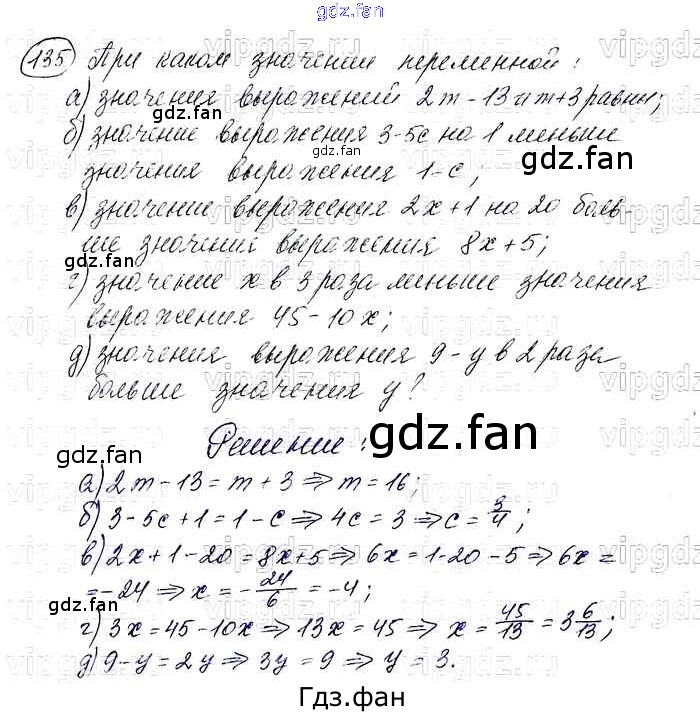 gdz.fan
135 При каком значении переменной:
а) значения выражений 2m-13 и m+3 равны;
б) значение выражения 3-5c на 1 меньше
gdz.fan
gdz.fan
значения выражения 1-c;
в) значение выражения 2x+1 на 20 боль-
ше значения выражения 8x+5;
gdz.fan
г) значение x в 3 раза меньше значения
выражения 45-10x;
д) значения выражения 9-y в 2 раза
больше значения y?
Решение:
gdz.fan
gdz.fan
а) 2m-13=m+3⇒m=16;
б) 3-5c+1=1-c⇒4c=3⇒c=3/4;
в) 2x+1-20=8x+5⇒6x=1-20-5⇒6x=
=-24⇒x=-24/6=-4;
gdz.fan
г) 3x=45-10x⇒13x=45⇒x=45/13=3 6/13;
д) 9-y=2y⇒3y=9⇒y=3.
Гдз.фан